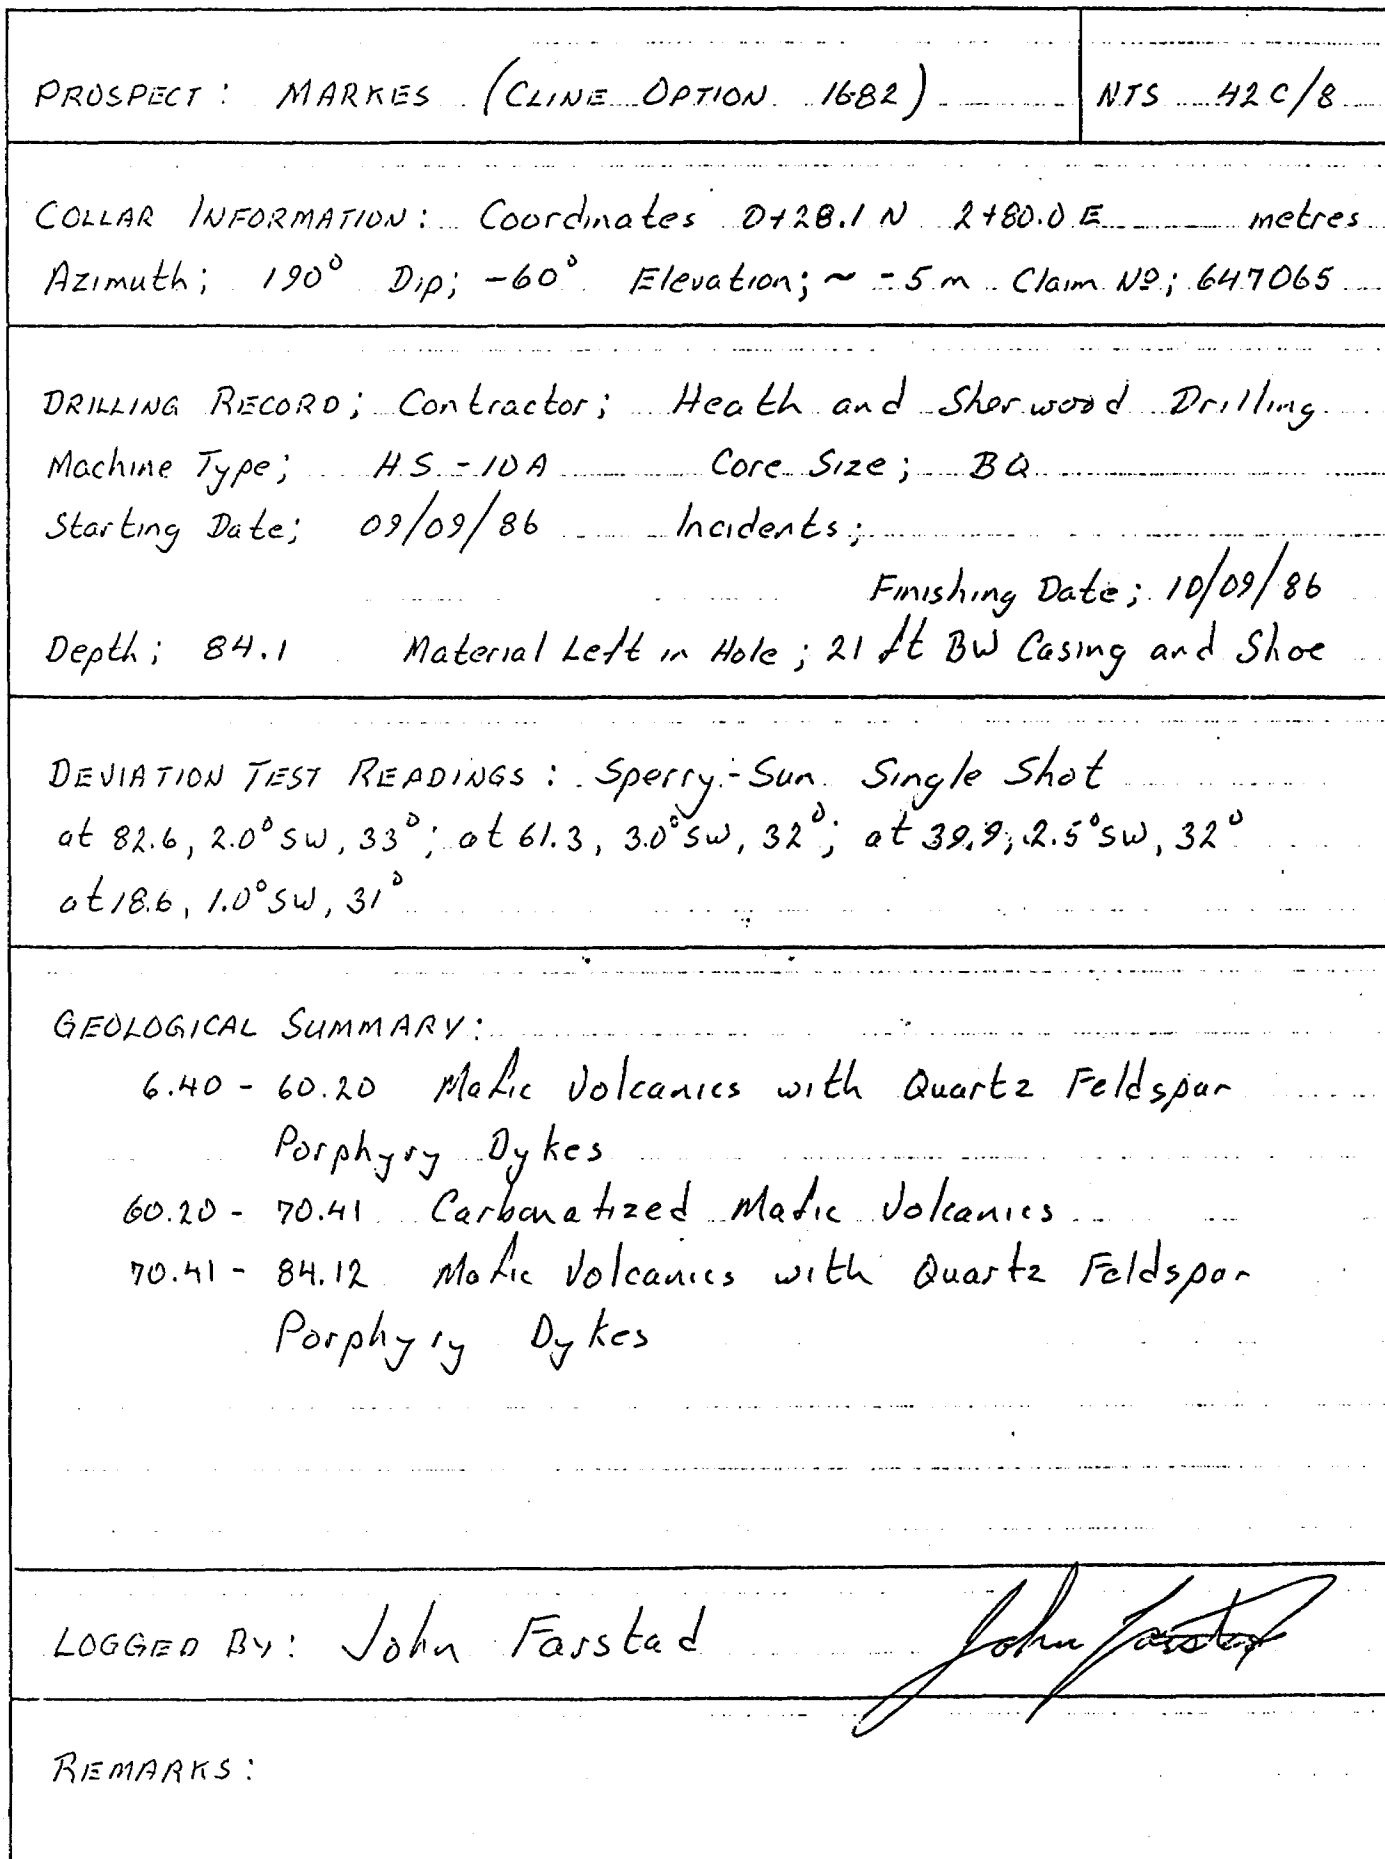 PROSPECT: MARKES (CLINE OPTION 1682) NTS 42C/8
COLLAR INFORMATION: Coordinates 0+28.1 N 2+80.0 E metres
Azimuth; 190° Dip; -60° Elevation; ~ -5 m Claim Nº; 647065
DRILLING RECORD; Contractor; Heath and Sherwood Drilling
Machine Type; HS-10A Core Size; BQ
Starting Date; 09/09/86 Incidents;
Finishing Date; 10/09/86
Depth; 84.1 Material Left in Hole; 21 ft BW Casing and Shoe
DEVIATION TEST READINGS: Sperry-Sun Single Shot
at 82.6, 2.0° SW, 33°; at 61.3, 3.0° SW, 32°; at 39.9, 2.5° SW, 32°
at 18.6, 1.0° SW, 31°
GEOLOGICAL SUMMARY:
6.40 - 60.20 Mafic Volcanics with Quartz Feldspar
Porphyry Dykes
60.20 - 70.41 Carbonatized Mafic Volcanics
70.41 - 84.12 Mafic Volcanics with Quartz Feldspar
Porphyry Dykes
LOGGED BY: John Farstad John Farstad
REMARKS: